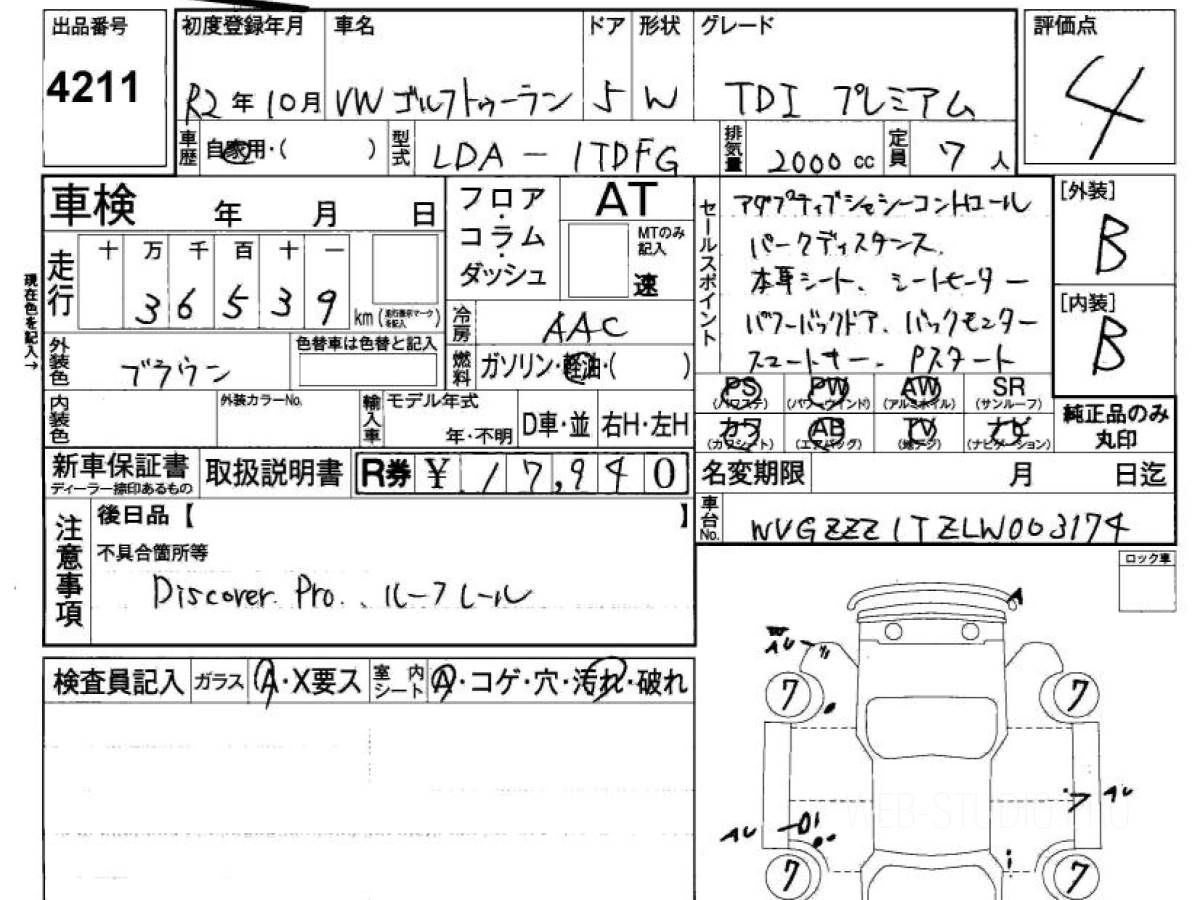 出品番号 初度登録年月 車名 ドア 形状 グレード 評価点
4211 R2年10月 VW ゴルフトゥーラン 5 W TDI プレミアム 4
車歴 自家用・( ) 型式 LDA-1TDFG 排気量 2000cc 定員 7人
車検 年 月 日
フロア・コラム・ダッシュ
AT
MTのみ記入
速
セールスポイント
アダプティブシャシーコントロール
パークディスタンス
本革シート、シートヒーター
パワーバックドア、バックモニター
スマートキー、Pスタート
[外装]
B
[内装]
B
現在色を記入→
走行 十 万 千 百 十 一
36539 km (走行表示マークを記入)
冷房 AAC
外装色 ブラウン 色替車は色替と記入
燃料 ガソリン・軽油・( )
内装色 外装カラーNo. 輸入車 モデル年式 年・不明 D車・並 右H・左H
PS (パワステ) PW (パワーウインド) AW (アルミホイル) SR (サンルーフ)
カワ (カワシート) AB (エアバッグ) TV (地デジ) ナビ (ナビゲーション)
純正品のみ丸印
新車保証書 ディーラー捺印あるもの 取扱説明書 R券 ¥17,940
名変期限 月 日迄
車台No. WVGZZZ1TZLW003174
注意事項
後日品【 】
不具合箇所等
Discover Pro、ルーフレール
ロック車
検査員記入 ガラス A・X要ス 室内シート A・コゲ・穴・汚れ・破れ
A
AU
7 7
AU
AU
7 7
WEB-STUDIO.PRO